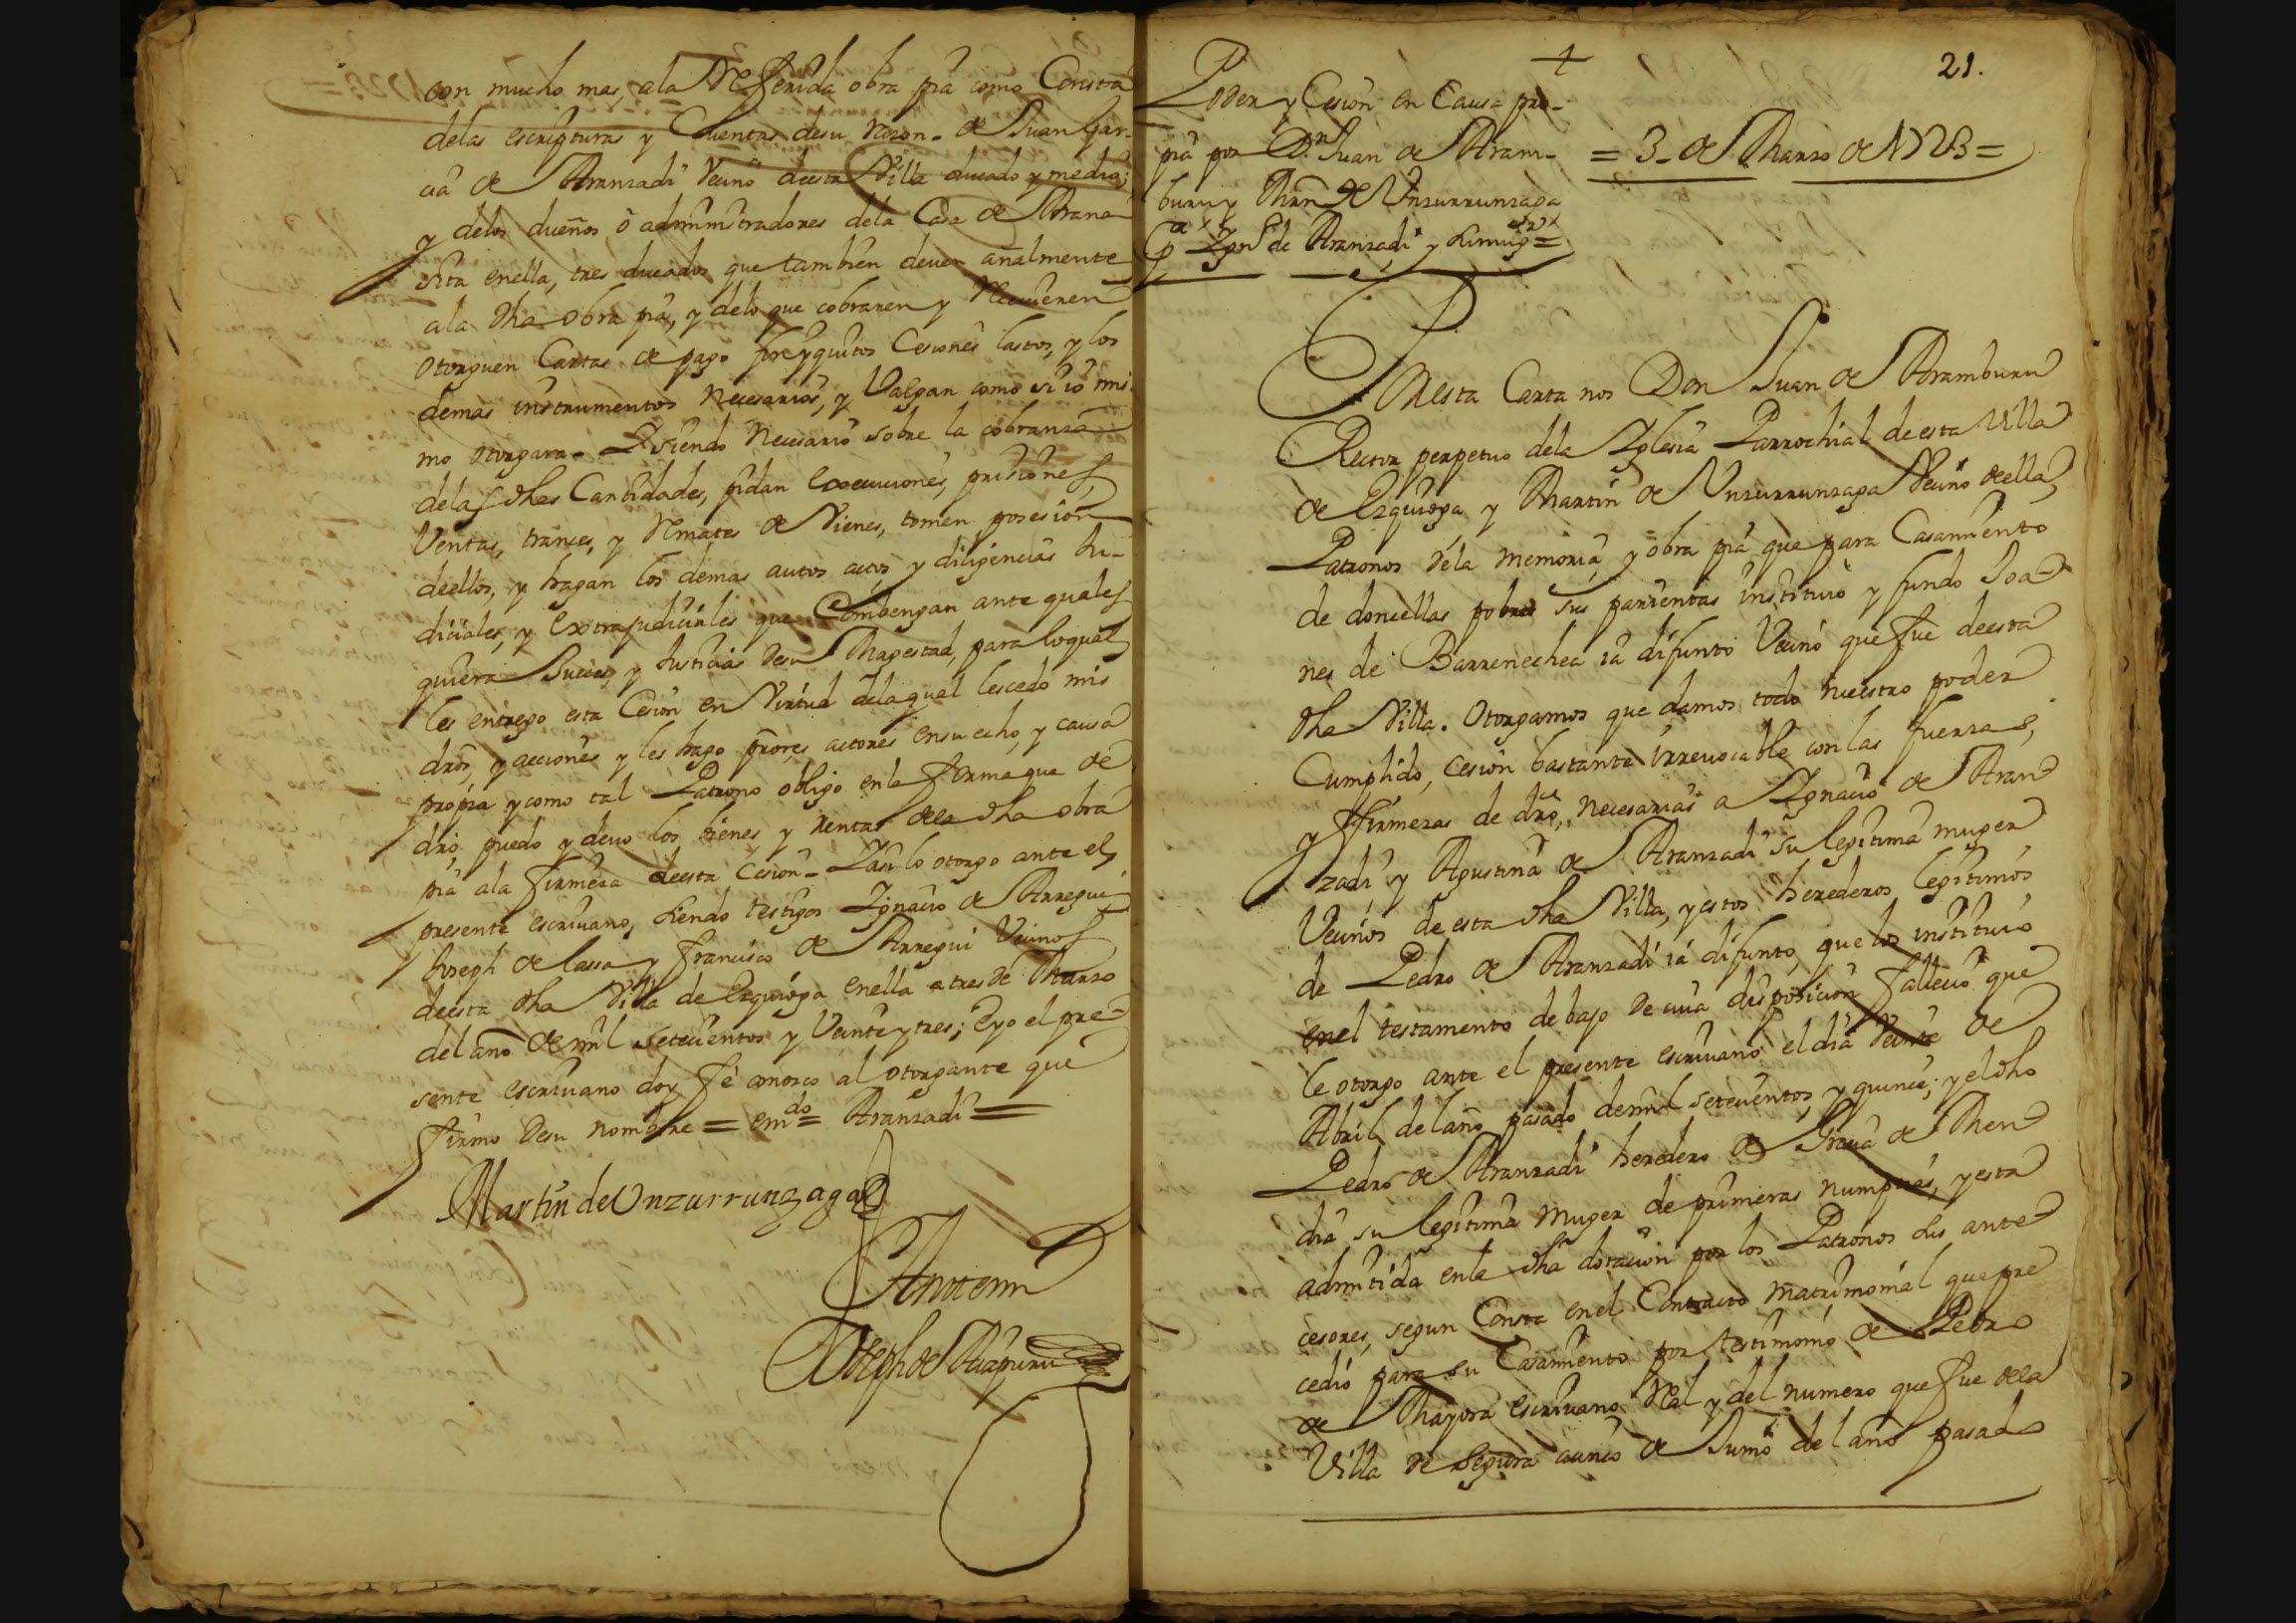 con mucho mas, ala Referida obra pia como Consta
delas escripturas y Cuentas desu razon - de Juan Gar-
cia de Aranzadi Vecino deesta Villa ducado y medio;
y delos dueños ò administradores dela Casa de Arana
sita enella, tres ducados que tambien deven añalmente
ala dha obra pia, y delo que cobraren y Recivieren
otorguen Cartas de pago finyquitos Cesiones lastos, y los
demas instrumentos necesarios, y Valgan como si io mis
mo otorgara - Y siendo necesario sobre la cobranza
delas dhas Cantidades, pidan execuciones, prisiones,
Ventas, trances, y Remates de Vienes, tomen posesion
deellos, y hagan los demas autos actos y diligencias Ju-
diciales, y extrajudiciales que Combengan ante quales
quiera Jueces y Justicias desu Magestad, para loqual
les entrego esta Cesion en Virtud delaqual lescedo mis
dros, y acciones y les hago prores, actores ensu echo, y causa
propia y como tal Patrono obligo enla forma que de
dro, puedo y devo los bienes, y rentas dela dha obra
pia ala firmeza deesta Cesion - Yasi lo otorgo ante el
presente escrivano, siendo testigos Ignacio de Arregui
Joseph de Lassa y Francisco de Arregui Vecinos
deesta dha Villa de Ezquioga enella a tres de Marzo
del año de mil setecientos y Veinte y tres; Eyo el pre-
sente escrivano doy fè conozco al otorgante que
firmo desu nombre = emdo = Aranzadi =
Martin de Vnzurrunzaga
Ante mi
Joseph de Aizpuru
21.
Poder y Cesion en Causa pro-
pia por Dn Juan de Aram-
buru y Mrn de Vnzurrunzaga
Pa Ignº de Aranzadi y su muger =
= 3 - de Marzo de 1723 =
En esta Carta nos Don Juan de Aramburu
Rector perpetuo dela Iglesia Parrochial deesta Villa
de Ezquioga, y Martin de Vnzurrunzaga Vecino deella,
Patronos dela memoria, y obra pia que para Casamiento
de doncellas pobres sus parientas instituiò y fundo Joa-
nes de Barrenechea ià difunto Vecino que fue deesta
dha Villa. Otorgamos que damos todo nuestro poder
Cumplido, cesion bastante irrevocable con las fuerzas,
y firmezas de dro, necesarias a Ignacio de Aran
zadi y Agustina de Aranzadi su legitima muger
Vecinos de esta dha Villa, y estos herederos legitimos
de Pedro de Aranzadi ià difunto, que los instituiò
enel testamento debajo de cuia disposicion falleciò que
le otorgo ante el presente escrivano el dia Veinte de
Abril del año pasado demil setecientos, y quince; y el dho
Pedro de Aranzadi heredero de Gracia de Men
dia su legitima muger de primeras numpcias, y esta
admitida enla dha dotacion por los Patronos sus ante
cesores, segun Consta enel Contracto matrimonial que pre
cediò para su Casamiento por testimonio de Pedro
de Mayora escrivano Real y del numero que fue dela
Villa de Segura a cinco de Junio del año pasado